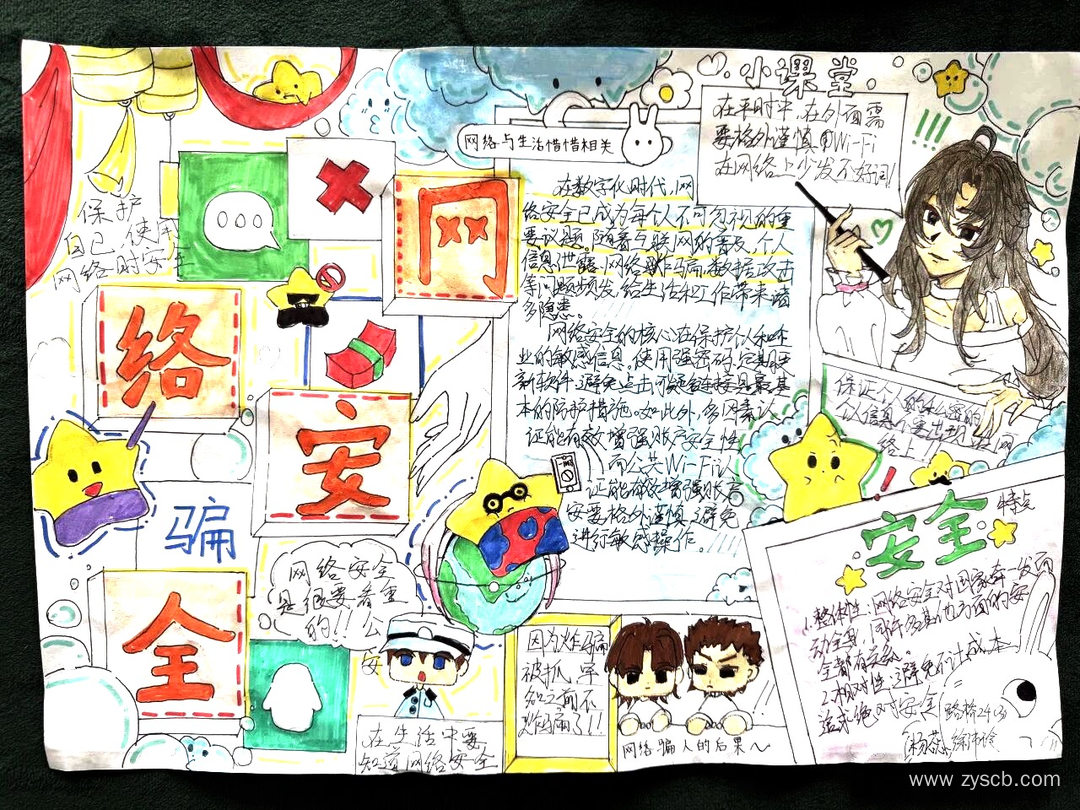 保护
自己,使用
网络时安全
網
络
安
全
骗
网络安全
是很要看重
的!!公
安
在生活中要
知道网络安全
网络与生活惜惜相关
在数字化时代,网
络安全已成为每个人不可忽视的重
要议题。随着互联网的普及,个人
信息泄露、网络诈骗、数据攻击
等问题频发,给生活和工作带来诸
多隐患。
网络安全的核心在保护个人和企
业的敏感信息。使用强密码、定期更
新软件、避免点击可疑链接是最基
本的防护措施。如此外,多因素认
证能有效增强账户安全性
而公共Wi-Fi认
证能有效增强账户
安要格外谨慎,避免
进行敏感操作。
小课堂
在平时中,在外面需
要格外谨慎用Wi-Fi
在网络上少发不好词!
!!!
保证个人的私密的
个人信息不要出现在网
络上!
安全
特点
1.整体性:网络安全对国家牵一发而
动全身,同许多其他方面的安
全都有关系。
2.相对性:避免不计成本
追求绝对安全
路桥24(3)
因为诈骗
被抓,牢
知之前不
诈骗了!!
网络骗人的后果~
www.zyscb.com